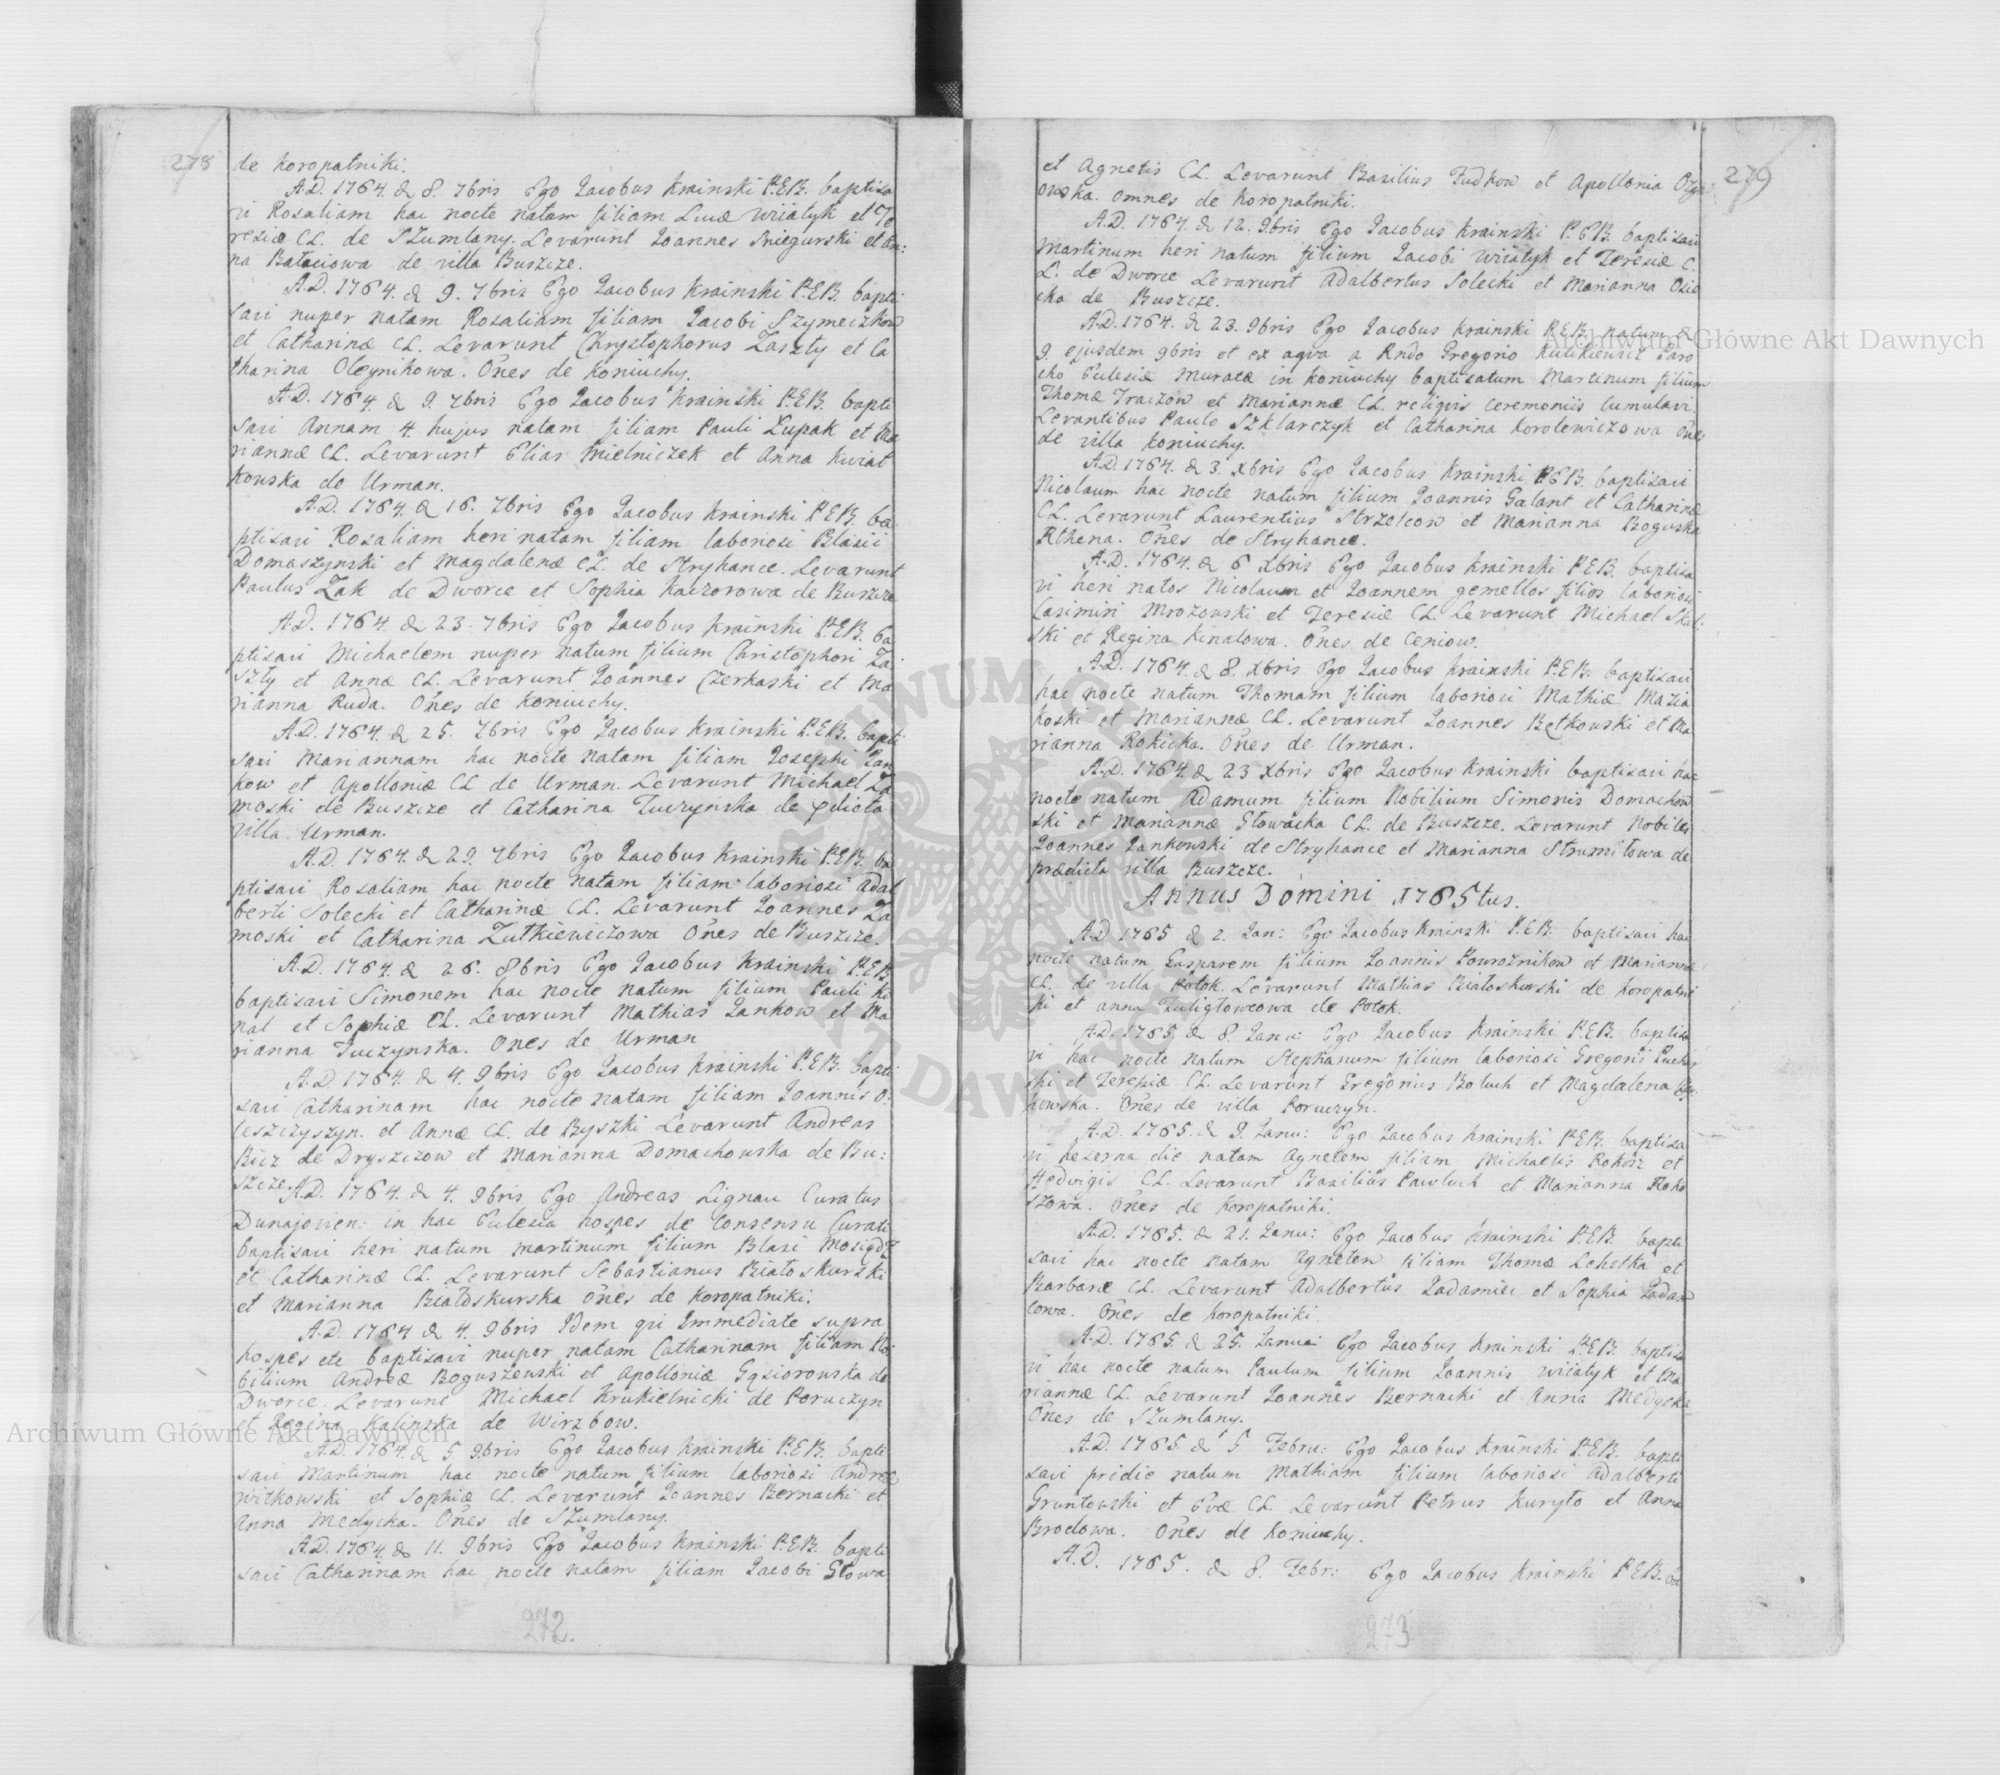 278
de Koropatniki.
A.D. 1764. d 8. 7bris Ego Jacobus Krainski P.E.B. baptisa
vi Rosaliam hac nocte natam filiam Lucæ Wiiatyk et Te
resiæ CL. de Szumlany. Levarunt Joannes Sniegurski et An:
na Bataciowa de villa Buszcze.
A.D. 1764. d 9. 7bris Ego Jacobus Krainski P.E.B. bapti
savi nuper natam Rosaliam filiam Jacobi Szymeczkow
et Catharinæ CL. Levarunt Chrystophorus Zaszty et Ca
tharina Oleynikowa. Ōnes de Koniuchy.
A.D. 1764. d 9. 7bris Ego Jacobus Krainski P.E.B. bapti
savi Annam 4. hujus natam filiam Pauli Zupak et Ma
riannæ CL. Levarunt Elias Mielniczek et Anna Kwiat
kowska de Urman.
A.D. 1764. d 16. 7bris Ego Jacobus Krainski P.E.B. ba
ptisavi Rosaliam heri natam filiam laboriosi Blasii
Domaszynski et Magdalenæ CL. de Stryhance. Levarunt
Paulus Zak de Dworce et Sophia Kaczorowa de Buszcze
A.D. 1764. d 23. 7bris Ego Jacobus Krainski P.E.B. ba
ptisavi Michaelem nuper natum filium Christophori Za
szty et Annæ CL. Levarunt Joannes Czerkaski et Ma
rianna Ruda. Ōnes de Koniuchy.
A.D. 1764. d 25. 7bris Ego Jacobus Krainski P.E.B. bapti
savi Mariannam hac nocte natam filiam Josephi Jan
kow et Apolloniæ CL de Urman. Levarunt Michael Za
moski de Buszcze et Catharina Tuczynska de pdicta
villa Urman.
A.D. 1764. d 29. 7bris Ego Jacobus Krainski P.E.B. ba
ptisavi Rosaliam hac nocte natam filiam laboriosi Adal
berti Solecki et Catharinæ CL. Levarunt Joannes Za
moski et Catharina Zutkiewiczowa Ōnes de Buszcze.
A.D. 1764. d 26. 8bris Ego Jacobus Krainski P.E.B.
baptisavi Simonem hac nocte natum filium Pauli Ki
nal et Sophiæ CL. Levarunt Mathias Jankow et Ma
rianna Tuczynska. Ōnes de Urman
A.D. 1764. d 4. 9bris Ego Jacobus Krainski P.E.B. bapti
savi Catharinam hac nocte natam filiam Joannis O.
leszczyszyn. et Annæ CL. de Byszki Levarunt Andreas
Bicz de Dryszczow et Marianna Domachowska de Bu:
szcze.
A.D. 1764. d 4. 9bris Ego Andreas Lignau Curatus
Dunajovien: in hac Eclesia hospes de consensu Curati
baptisavi heri natum Martinum filium Blasi Mosiądz
et Catharinæ CL. Levarunt Sebastianus Białoskurski
et Marianna Białoskurska Ōnes de Koropatniki.
A.D. 1764 d 4. 9bris Idem qui Immediate supra
hospes etc baptisavi nuper natam Catharinam filiam No
bilium Andreæ Boguszewski et Apolloniæ Gąsiorowska de
Dworce. Levarunt Michael Krukielnicki de Poruczyn
et Regina Kalinska de Wirzbow.
A.D. 1764. d 5 9bris Ego Jacobus Krainski P.E.B. bapti
savi Martinum hac nocte natum filium laboriosi Andreæ
Witkowski et Sophiæ CL. Levarunt Joannes Bernacki et
Anna Medycka. Ōnes de Szumlany.
A.D. 1764. d 11. 9bris Ego Jacobus Krainski P.E.B. bapti
savi Catharinam hac nocte natam filiam Jacobi Głowa
272.
279
et Agnetis CL. Levarunt Basilius Fudkow et Apollonia
owska. Omnes de Koropatniki.
A.D. 1764. d 12. 9bris Ego Jacobus Krainski P.E.B. baptisavi
Martinum heri natum filium Jacobi Wiiatyk et Teresiæ C.
L. de Dworce Levarunt Adalbertus Solecki et Marianna Osie
cka de Buszcze.
A.D. 1764. d 23. 9bris Ego Jacobus Krainski P.E.B. natum d
9. ejusdem 9bris et ex aqva a Rndo Gregorio Kulikiewicz Paro
cho Eclesiæ Muratæ in Koniuchy baptisatum Martinum filium
Thomæ Traczow et Mariannæ CL. reliqvis ceremoniis cumulavi.
Levantibus Paulo Szklarczyk et Catharina Korolewiczowa Ōnes
de villa Koniuchy.
A.D. 1764. d 3. Xbris Ego Jacobus Krainski P.E.B. baptisavi
Nicolaum hac nocte natum filium Joannis Galant et Catharinæ
CL. Levarunt Laurentius Strzelcow et Marianna Boguska
Rthena. Ōnes de Stryhance.
A.D. 1764. d 6 Xbris Ego Jacobus Krainski P.E.B. baptisa
vi heri natos Nicolaum et Joannem gemellos filios laboriosi
Casimiri Mrozowski et Teresiæ CL. Levarunt Michael Skal:
ski et Regina Kinalowa. Ōnes de Ceniow.
A.D. 1764. d 8. Xbris Ego Jacobus Krainski P.E.B. baptisavi
hac nocte natum Thomam filium laboriosi Mathiæ Mazia
koski et Mariannæ CL. Levarunt Joannes Bętkowski et Ma
rianna Rokicka. Ōnes de Urman.
A.D. 1764. d 23 Xbris Ego Jacobus Krainski baptisavi hac
nocte natum Adamum filium Nobilium Simonis Domachow
ski et Mariannæ Słowacka CL. de Buszcze. Levarunt Nobiles
Joannes Jankowski de Stryhance et Marianna Strumiłowa de
prædicta villa Buszcze.
Annus Domini 1765tus.
A.D. 1765 d 2. Jan: Ego Jacobus Krainski P.E.B. baptisavi hac
nocte natum Gasparem filium Joannis Powroznikow et Mariannæ
CL. de villa Potok. Levarunt Mathias Białoskurski de Koropatni
ki et Anna Tuligłowcowa de Potok.
A.D. 1765. d 8. Janu: Ego Jacobus Krainski P.E.B. baptisa
vi hac nocte natum Stephanum filium laboriosi Gregorii Puchir
ski et Teresiæ CL. Levarunt Gregorius Boluch et Magdalena
kowska. Ōnes de villa Poruczyn.
A.D. 1765. d 9. Janu: Ego Jacobus Krainski P.E.B. baptisa
vi hesterna die natam Agnetem filiam Michaelis Rokosz et
Hedvigis CL. Levarunt Basilius Pawluch et Marianna Roko
szowa. Ōnes de Koropatniki.
A.D. 1765. d 21. Janu: Ego Jacobus Krainski P.E.B. bapti
savi hac nocte natam Agneten filiam Thomæ Lehetka et
Barbaræ CL. Levarunt Adalbertus Jadamiec et Sophia Jadam
cowa. Ōnes de Koropatniki.
A.D. 1765. d 25. Janua: Ego Jacobus Krainski P.E.B. baptisa
vi hac nocte natum Paulum filium Joannis Wiiatyk et Ma
riannæ CL. Levarunt Joannes Bernacki et Anna Medycka
Ōnes de Szumlany.
A.D. 1765. d 5 Febru: Ego Jacobus Krainski P.E.B. bapti
savi pridie natum Mathiam filium laboriosi Adalberti
Gruntowski et Evæ CL. Levarunt Petrus Kuryło et Anna
Brodowa. Ōnes de Koniuchy.
A.D. 1765. d 8. Febr: Ego Jacobus Krainski P.E.B. ba
273
Archiwum Główne Akt Dawnych
Archiwum Główne Akt Dawnych